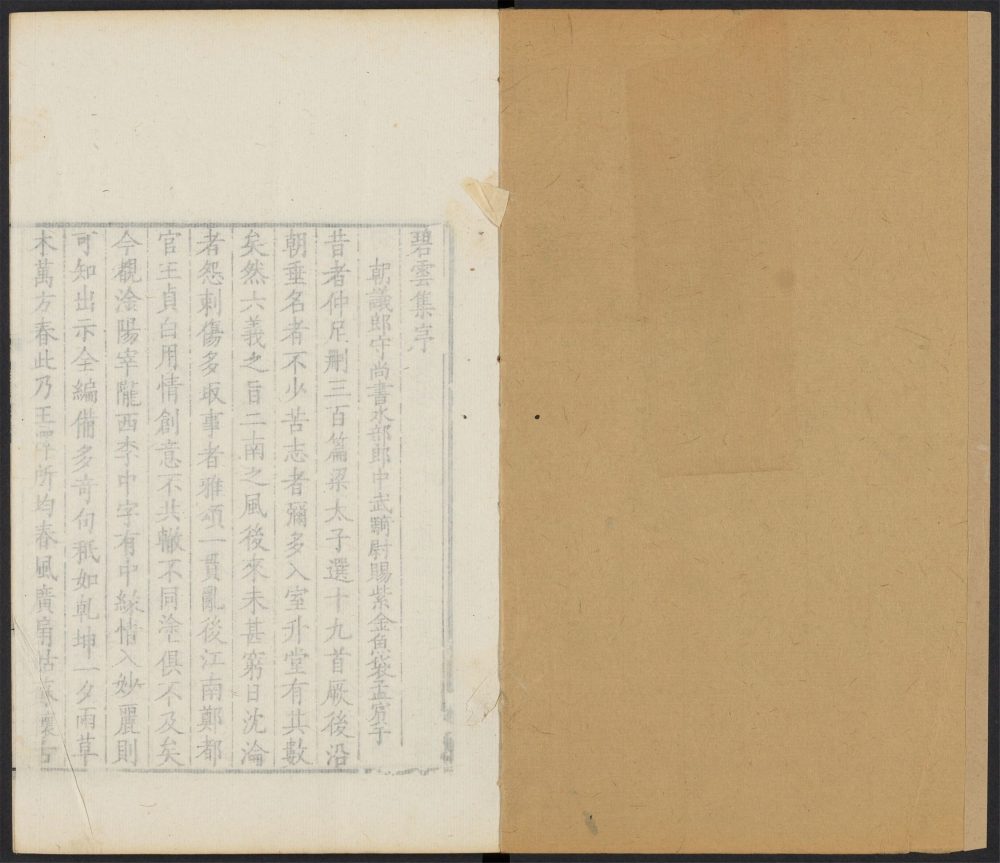 碧雲集序
朝議郎守尚書水部郎中武騎尉賜紫金魚袋孟賓于
昔者仲尼刪三百篇梁太子選十九首厥後沿
朝垂名者不少苦志者彌多入室升堂有其數
矣然六義之旨二南之風後來未甚窮日沈淪
者怨刺傷多取事者雅頌一貫亂後江南鄭都
官王貞白用情創意不共轍不同塗俱不及矣
今覩淦陽宰隴西李中字有中緣情入妙麗則
可知出示全編備多奇句秪如乾坤一夕雨草
木萬方春此乃王澤所均春風廣扇姑蘇懷古